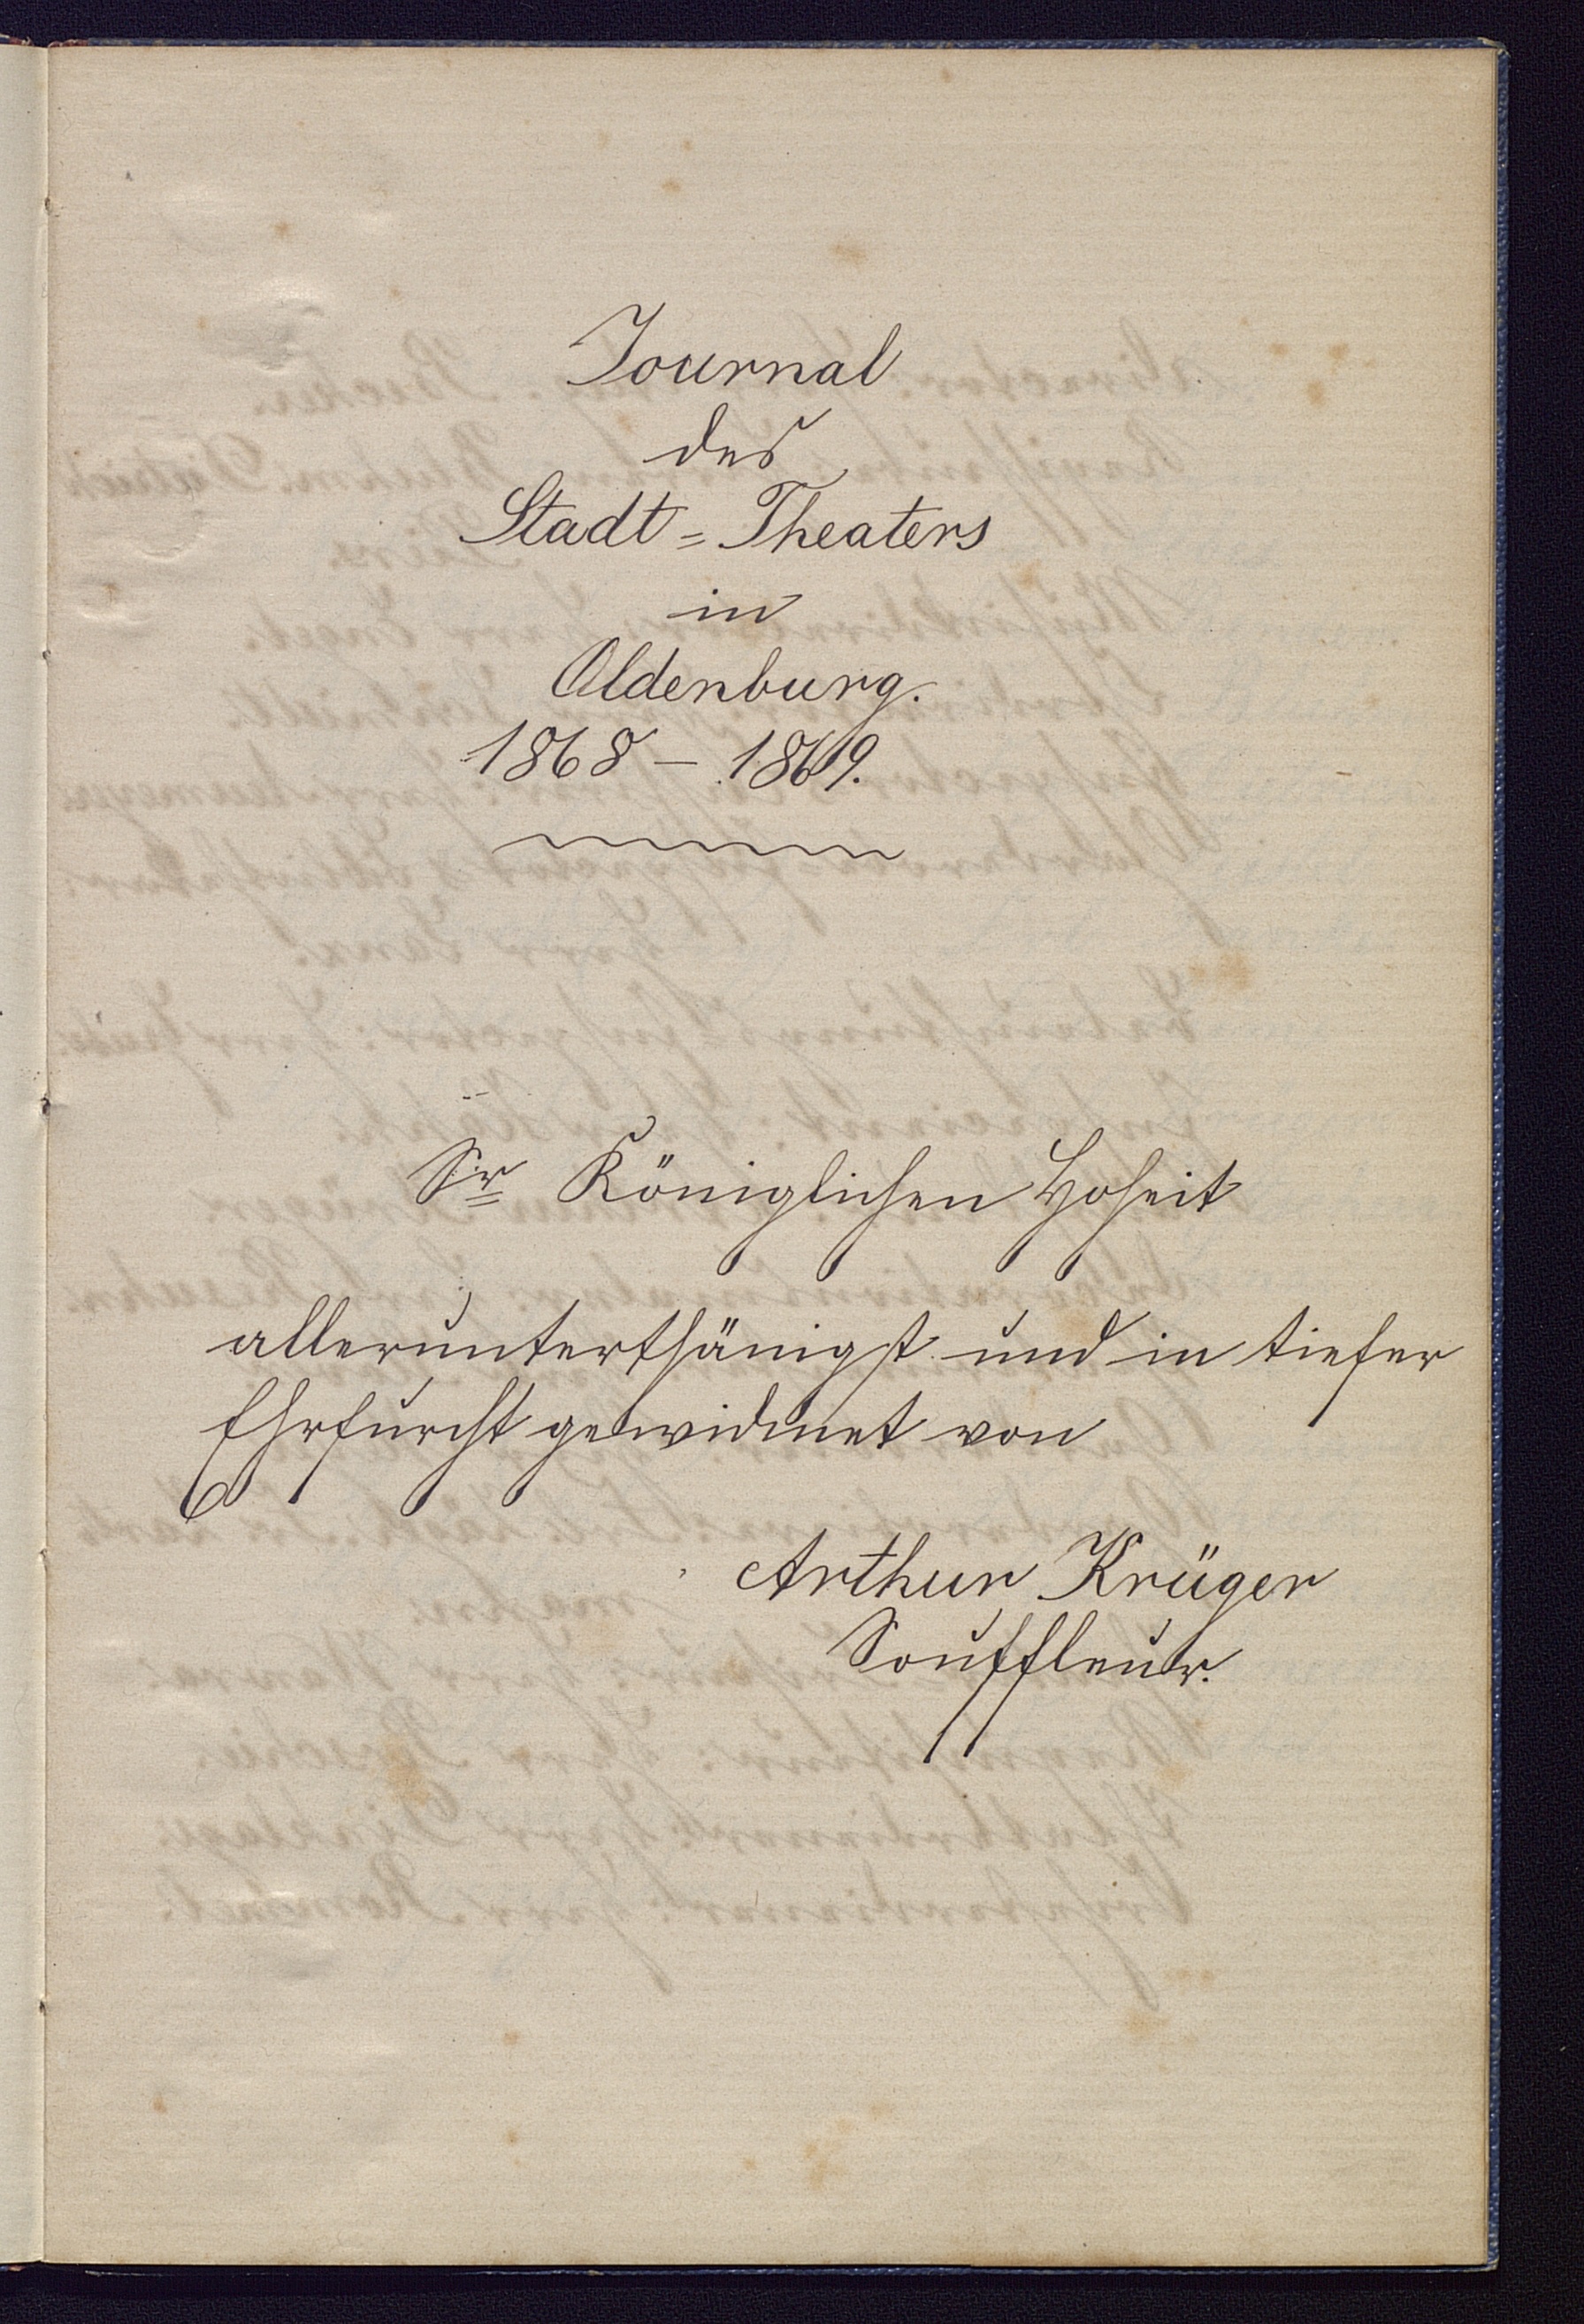 Journal
des
Stadt=Theaters
in
Oldenburg.
1868 – 1869.
Sr Königlichen Hoheit
allerunterthänigst und in tiefer
Ehrfurcht gewidmet von
Arthur Krüger
Souffleur.